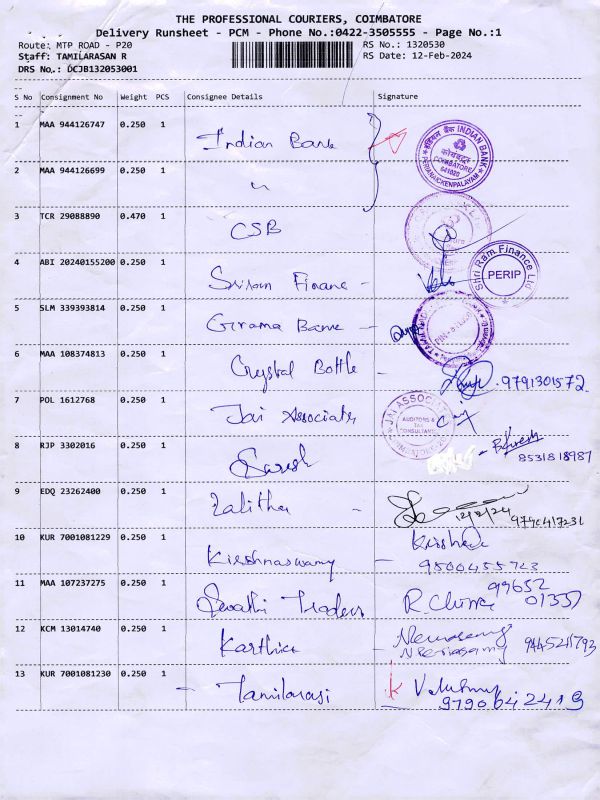 THE PROFESSIONAL COURIERS, COIMBATORE
Delivery Runsheet - PCM - Phone No.:0422-3505555 - Page No.:1
Route: MTP ROAD - P20 RS No.: 1320530
Staff: TAMILARASAN R RS Date: 12-Feb-2024
DRS No.: DCJB132053001
S No Consignment No Weight PCS Consignee Details Signature
1 MAA 944126747 0.250 1 Indian Bank
INDIAN BANK
COIMBATORE
641020
PERIANAICKENPALAYAM
2 MAA 944126699 0.250 1 "
3 TCR 29088890 0.470 1 CSB
4 ABI 20240155200 0.250 1 Srisan Finane -
Shri Ram Finance Ltd
PERIP
5 SLM 339393814 0.250 1 Grama Bame -
6 MAA 108374813 0.250 1 Crystal Bottle - 9791301572
7 POL 1612768 0.250 1 Jai Associats
JAI ASSOCIAT
AUDITORS &
TAX
CONSULTANTS
8 RJP 3302016 0.250 1 Saresh
8531818987
9 EDQ 23262400 0.250 1 Lalitha - 12/2/24
10 KUR 7001081229 0.250 1 Kirshnaswamy -
11 MAA 107237275 0.250 1 Swathi Traders R.
99652
01357
12 KCM 13014740 0.250 1 Karthica
13 KUR 7001081230 0.250 1 - Tamilarasi
9790642419